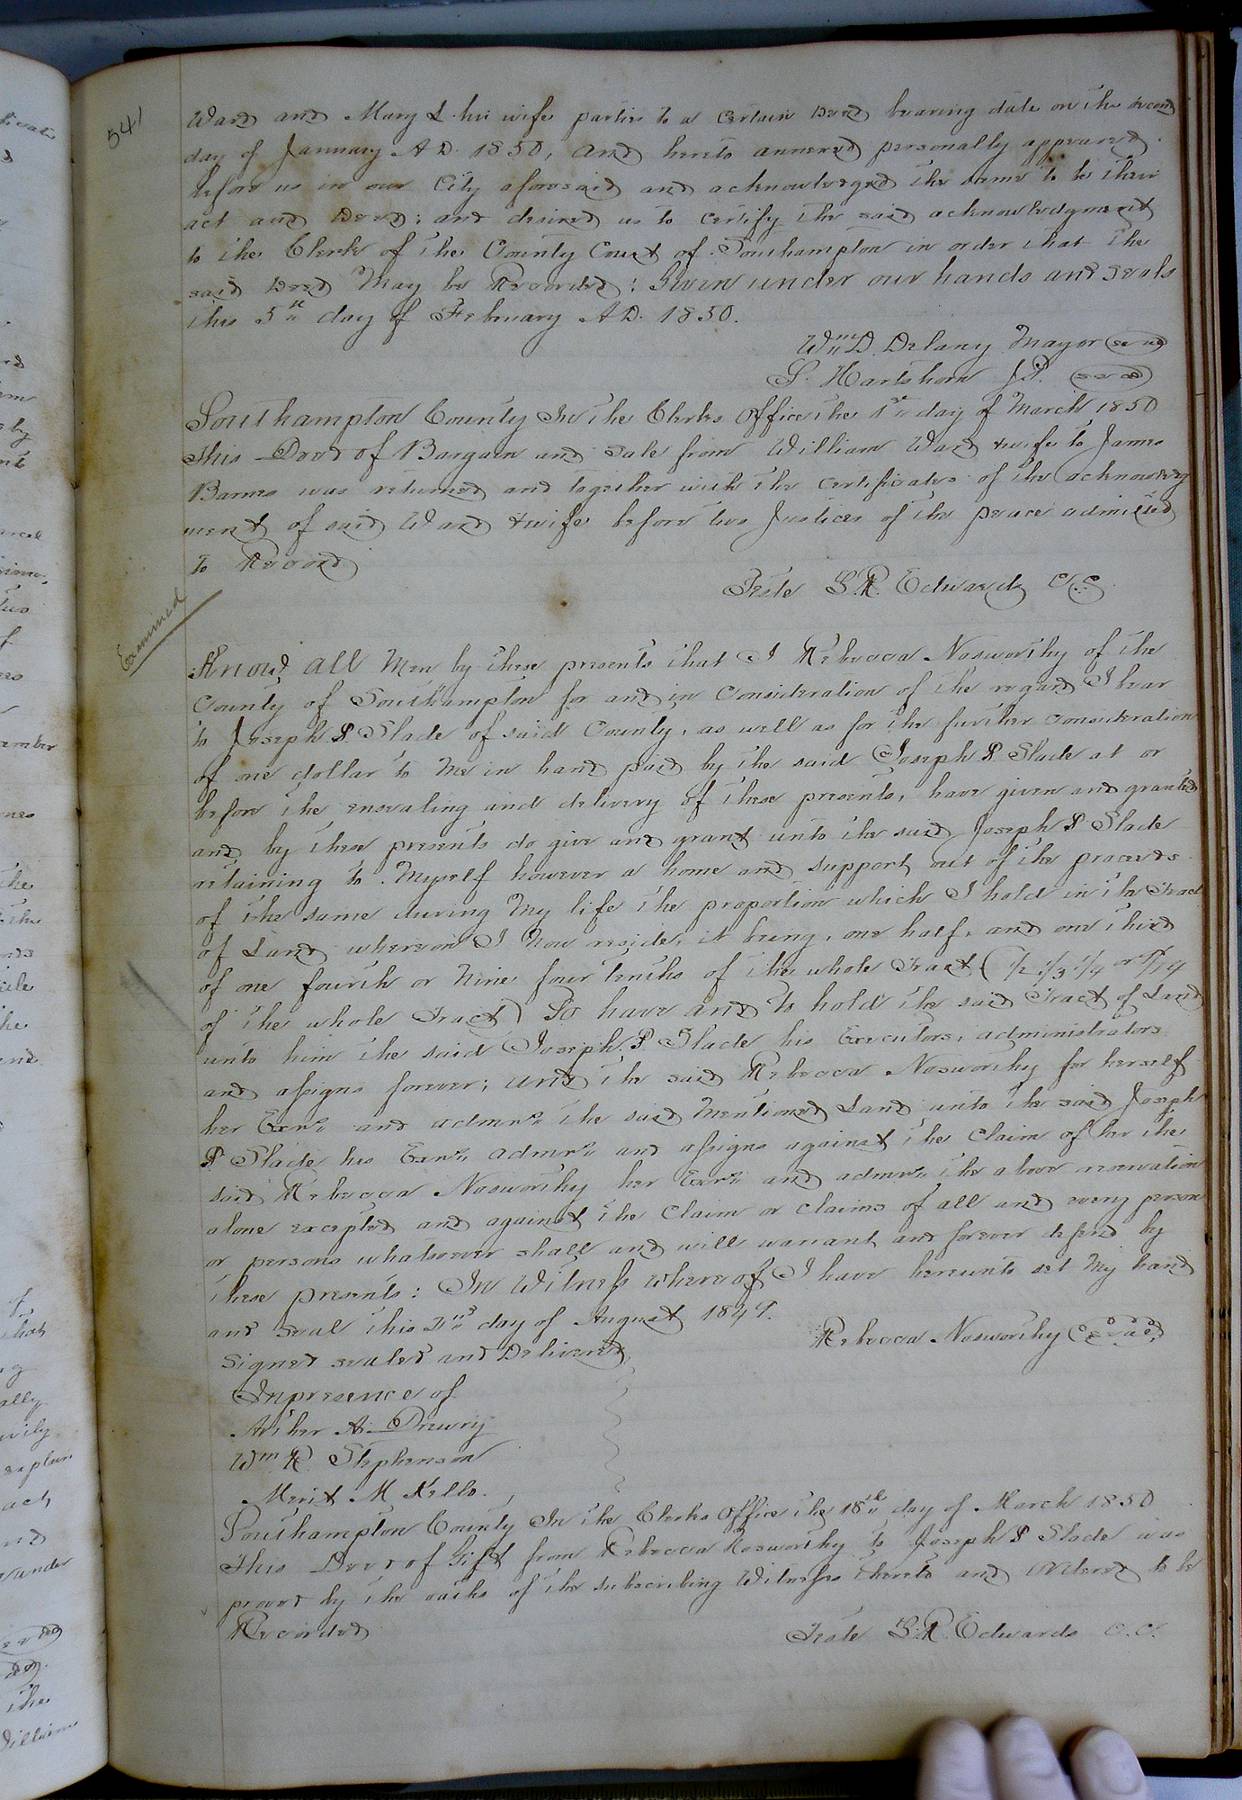 541
Ward and Mary L his wife parties to a certain Deed bearing date on the second
day of January A.D. 1850, and hereto annexed personally appeared
before us in our City aforesaid and acknowledged the same to be their
act and Deed; and desired us to certify the said acknowledgment
to the Clerk of the County Court of Southampton in order that the
said Deed May be Recorded; Given under our hands and seals
this 5th day of February A.D. 1850.
Wm D. Delany Mayor (seal)
S. Hartshorn J.P. (seal)
Southampton County In the Clerks Office the 1st day of March 1850
This Deed of Bargain and Sale from William Ward & wife to James
Barnes was returned and together with the certificates of the acknowledg
ment of said Ward & wife before two Justices of the peace admitted
to Record
Teste L.R. Edwards C.C.
Examined
Know all Men by these presents that I Rebecca Nosworthy of the
County of Southampton for and in Consideration of the regard I bear
to Joseph P Slade of said County, as well as for the further consideration
of one dollar to Me in hand paid by the said Joseph P Slade at or
before the ensealing and delivery of these presents, have given and granted
and by these presents do give and grant unto the said Joseph P Slade
retaining to Myself however a home and support out of the proceeds
of the same during My life the proportion which I hold in the Tract
of Land whereon I Now reside, it being, one half, and one third
of one fourth or Nine fourtenths of the whole Tract (1/2 1/3 1/4 or 9/14
of the whole Tract) To have and to hold the said Tract of Land
unto him the said Joseph P Slade his Executors, administrators
and assigns forever; and the said Rebecca Nosworthy for herself
her Exrs and admrs the said Mentioned Land unto the said Joseph
P Slade his Exrs, admrs and assigns against the Claim of her the
said Rebecca Nosworthy her Exrs and admrs the above reservation
alone excepted and against the Claim or claims of all and every person
or persons whatsoever shall and will warrant and forever defend by
these presents: In Witness whereof I have hereunto set My hand
and seal this day of August 1849.
Rebecca Nosworthy (seal)
Signed sealed and Delivered
In presence of
Arther A. Drewry
Wm R. Stephenson
Merit M Kello.
Southampton County In the Clerks Office the 18th day of March 1850
This Deed of Gift from Rebecca Nosworthy to Joseph P Slade was
proved by the oaths of the subscribing Witnesses thereto and Ordered to be
Recorded
Teste L.R. Edwards C.C.